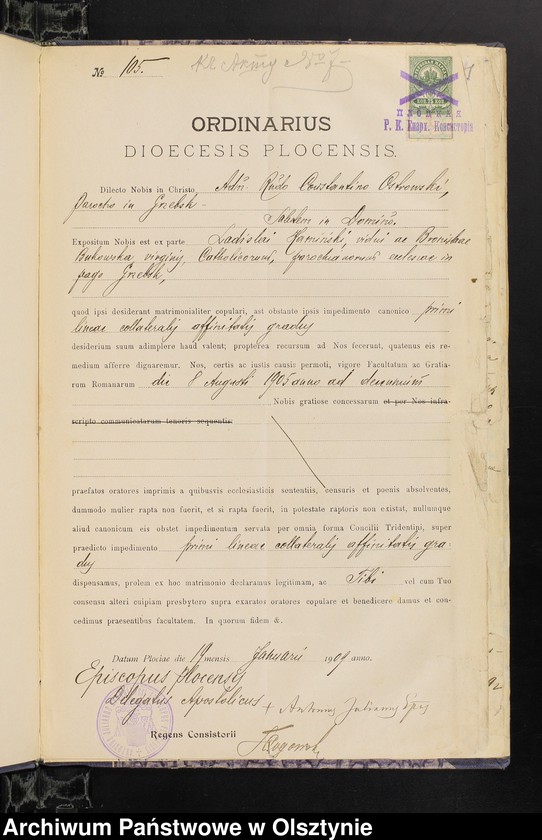 № 105.
ПЛОЦКАЯ
Р. К. Епарх. Консисторія
ORDINARIUS
DIOECESIS PLOCENSIS.
Dilecto Nobis in Christo, Adm. Rndo Constantino Ostrowski,
parocho in Grzebsk -
Salutem in Domino.
Expositum Nobis est ex parte Ladislai Kamiński, vidui ac Bronislae
Bukowska virginis, Catholicorum, parochianorum ecclesiae in
pago Grzebsk,
quod ipsi desiderant matrimonialiter copulari, ast obstante ipsis impedimento canonico primi
lineae collateralis affinitatis gradus
desiderium suum adimplere haud valent; propterea recursum ad Nos fecerunt, quatenus eis re-
medium afferre dignaremur. Nos, certis ac iustis causis permoti, vigore Facultatum ac Gratia-
rum Romanarum die 8 Augusti 1905 anno ad decennium
Nobis gratiose concessarum et per Nos infra-
scripto communicatarum tenoris sequentis:
praefatos oratores imprimis a quibusvis ecclesiasticis sententiis, censuris et poenis absolventes,
dummodo mulier rapta non fuerit, et si rapta fuerit, in potestate raptoris non existat, nullumque
aliud canonicum eis obstet impedimentum servata per omnia forma Concilii Tridentini, super
praedicto impedimento primi lineae collateralis affinitatis gra-
dus
dispensamus, prolem ex hoc matrimonio declaramus legitimam, ac Tibi vel cum Tuo
consensu alteri cuipiam presbytero supra exaratos oratores copulare et benedicere damus et con-
cedimus praesentibus facultatem. In quorum fidem &.
Datum Plociae die 19 mensis Januarii 1909 anno.
Episcopus Plocensis
Delegatus Apostolicus + Antonius Julianus Eps
Regens Consistorii
Archiwum Państwowe w Olsztynie